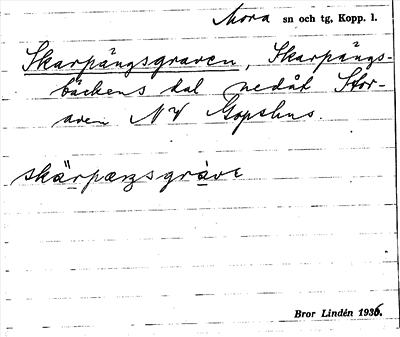 Mora sn och tg, Kopp. l.
Skarpängsgraven, Skarpängs-
bäckens dal nedåt Stor-
aven NV Gopshus.
skärpæŋsgràve
Bror Lindén 1936.